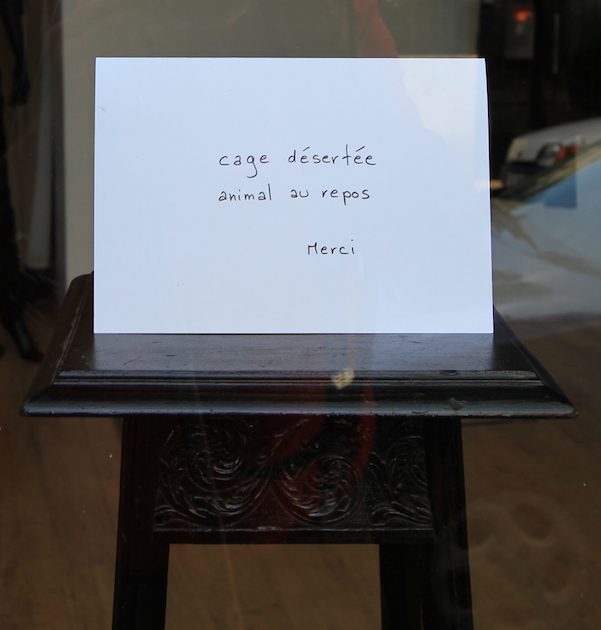 cage désertée
animal au repos
Merci